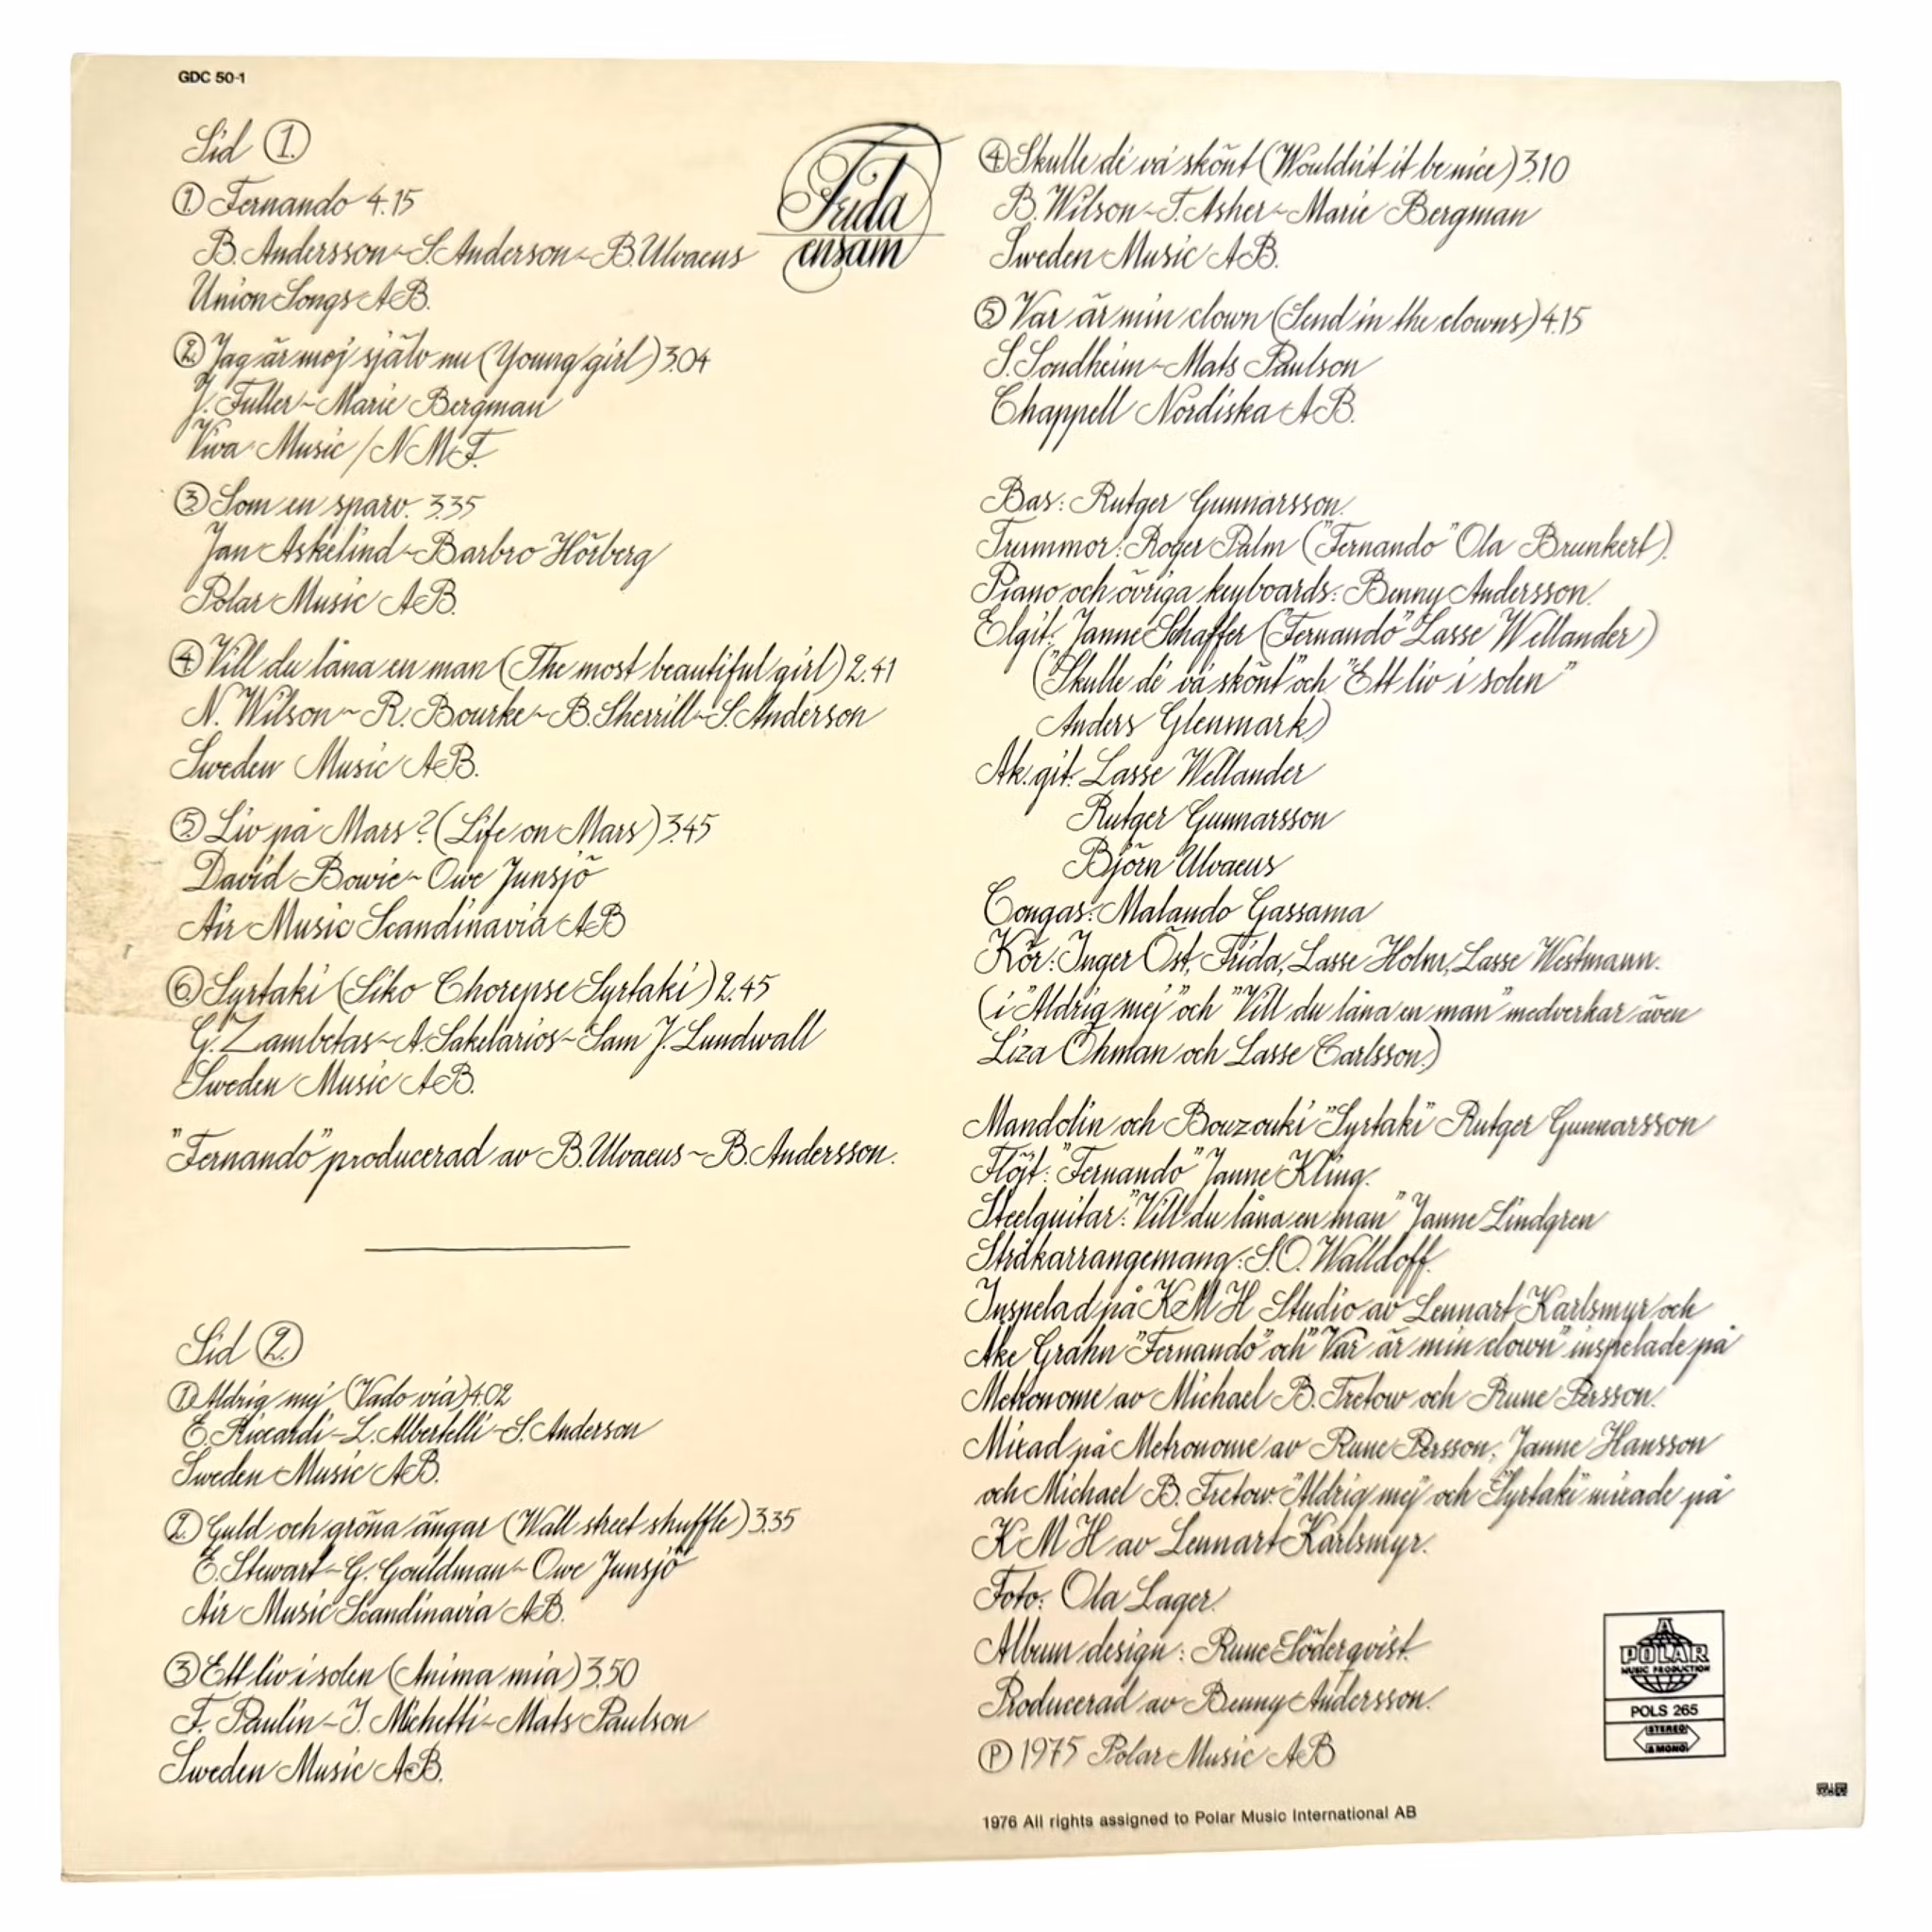 GDC 50-1
Sid 1.
1. Fernando 4.15
B. Andersson~S. Anderson~B. Ulvaeus
Union Songs AB.
2. Jag är mej själv nu (Young girl) 3.04
J. Fuller~Marie Bergman
Viva Music/NMF.
3. Som en sparv. 3.35
Jan Askelind~Barbro Hörberg
Polar Music AB.
4. Vill du låna en man (The most beautiful girl) 2.41
N. Wilson~R. Bourke~B. Sherrill~S. Anderson
Sweden Music AB.
5. Liv på Mars? (Life on Mars) 3.45
David Bowie~Owe Junsjö
Air Music Scandinavia AB
6. Syrtaki (Siko Chorepse Syrtaki) 2.45
G. Zambetas~A. Sakelarios~Sam J. Lundwall
Sweden Music AB.
"Fernando" producerad av B. Ulvaeus~B. Andersson.
Sid 2.
1. Aldrig mej (Vado via) 4.02
E. Riccardi~L. Albertelli~S. Anderson
Sweden Music AB.
2. Guld och gröna ängar (Wall street shuffle) 3.35
E. Stewart~G. Gouldman~Owe Junsjö
Air Music Scandinavia AB.
3. Ett liv i solen (Anima mia) 3.50
F. Paulin~I. Michetti~Mats Paulson
Sweden Music AB.
Frida
ensam
4. Skulle de' va' skönt (Wouldn't it be nice) 3.10
B. Wilson~T. Asher~Marie Bergman
Sweden Music AB.
5. Var är min clown (Send in the clowns) 4.15
S. Sondheim~Mats Paulson
Chappell Nordiska AB.
Bas: Rutger Gunnarsson.
Trummor: Roger Palm ("Fernando" Ola Brunkert).
Piano och övriga keyboards: Benny Andersson.
Elgit: Janne Schaffer ("Fernando" Lasse Wellander)
("Skulle de' va' skönt" och "Ett liv i solen"
Anders Glenmark)
Ak. git: Lasse Wellander
Rutger Gunnarsson
Björn Ulvaeus
Congas: Malando Gassama
Kör: Inger Öst, Frida, Lasse Holm, Lasse Westmann.
(i "Aldrig mej" och "Vill du låna en man" medverkar även
Liza Öhman och Lasse Carlsson)
Mandolin och Bouzouki "Syrtaki" Rutger Gunnarsson
Flöjt: "Fernando" Janne Kling.
Steelguitar: "Vill du låna en man" Janne Lindgren
Stråkarrangemang: S.O. Walldoff.
Inspelad på KMH Studio av Lennart Karlsmyr och
Åke Grahn "Fernando" och "Var är min clown" inspelade på
Metronome av Michael B. Tretow och Rune Persson.
Mixad på Metronome av Rune Persson, Janne Hansson
och Michael B. Tretow. "Aldrig mej" och "Syrtaki" mixade på
KMH av Lennart Karlsmyr.
Foto: Ola Lager.
Album design: Rune Söderqvist.
Producerad av Benny Andersson.
℗ 1975 Polar Music AB
1976 All rights assigned to Polar Music International AB
A
POLAR
MUSIC PRODUCTION
POLS 265
STEREO
& MONO